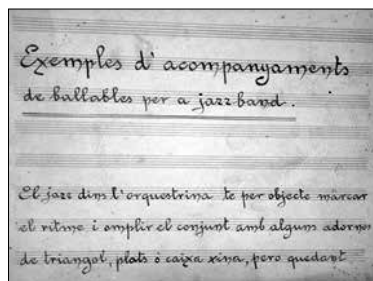 Exemples d'acompanyaments
de ballables per a jazz-band.
El jazz dins l'orquestrina te per objecte màrcar
el ritme i omplir el conjunt amb alguns adornos
de triangol, plats ó caixa xina, pero quedant